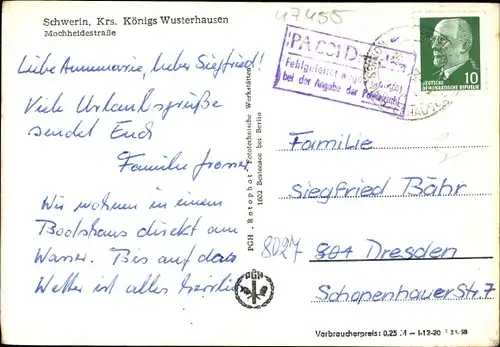 47455
Schwerin, Krs. Königs Wusterhausen
Mochheidestraße
Liebe Annemarie, lieber Siegfried!
Viele Urlaubsgrüße
sendet Euch
Familie
Wir wohnen in einem
Bootshaus direkt am
Wasser. Bis auf das
Wetter ist alles herrlich
PGH „Rotophot“ Fototechnische Werkstätten
1602 Bestensee bei Berlin
PGH
Fehlgeleitet wegen
bei der Angabe der
10
DEUTSCHE
DEMOKRATISCHE REPUBLIK
Familie
Siegfried Bähr
8027 801 Dresden
Schopenhauer Str. 7
Verbraucherpreis: 0,25 M – I-12-20